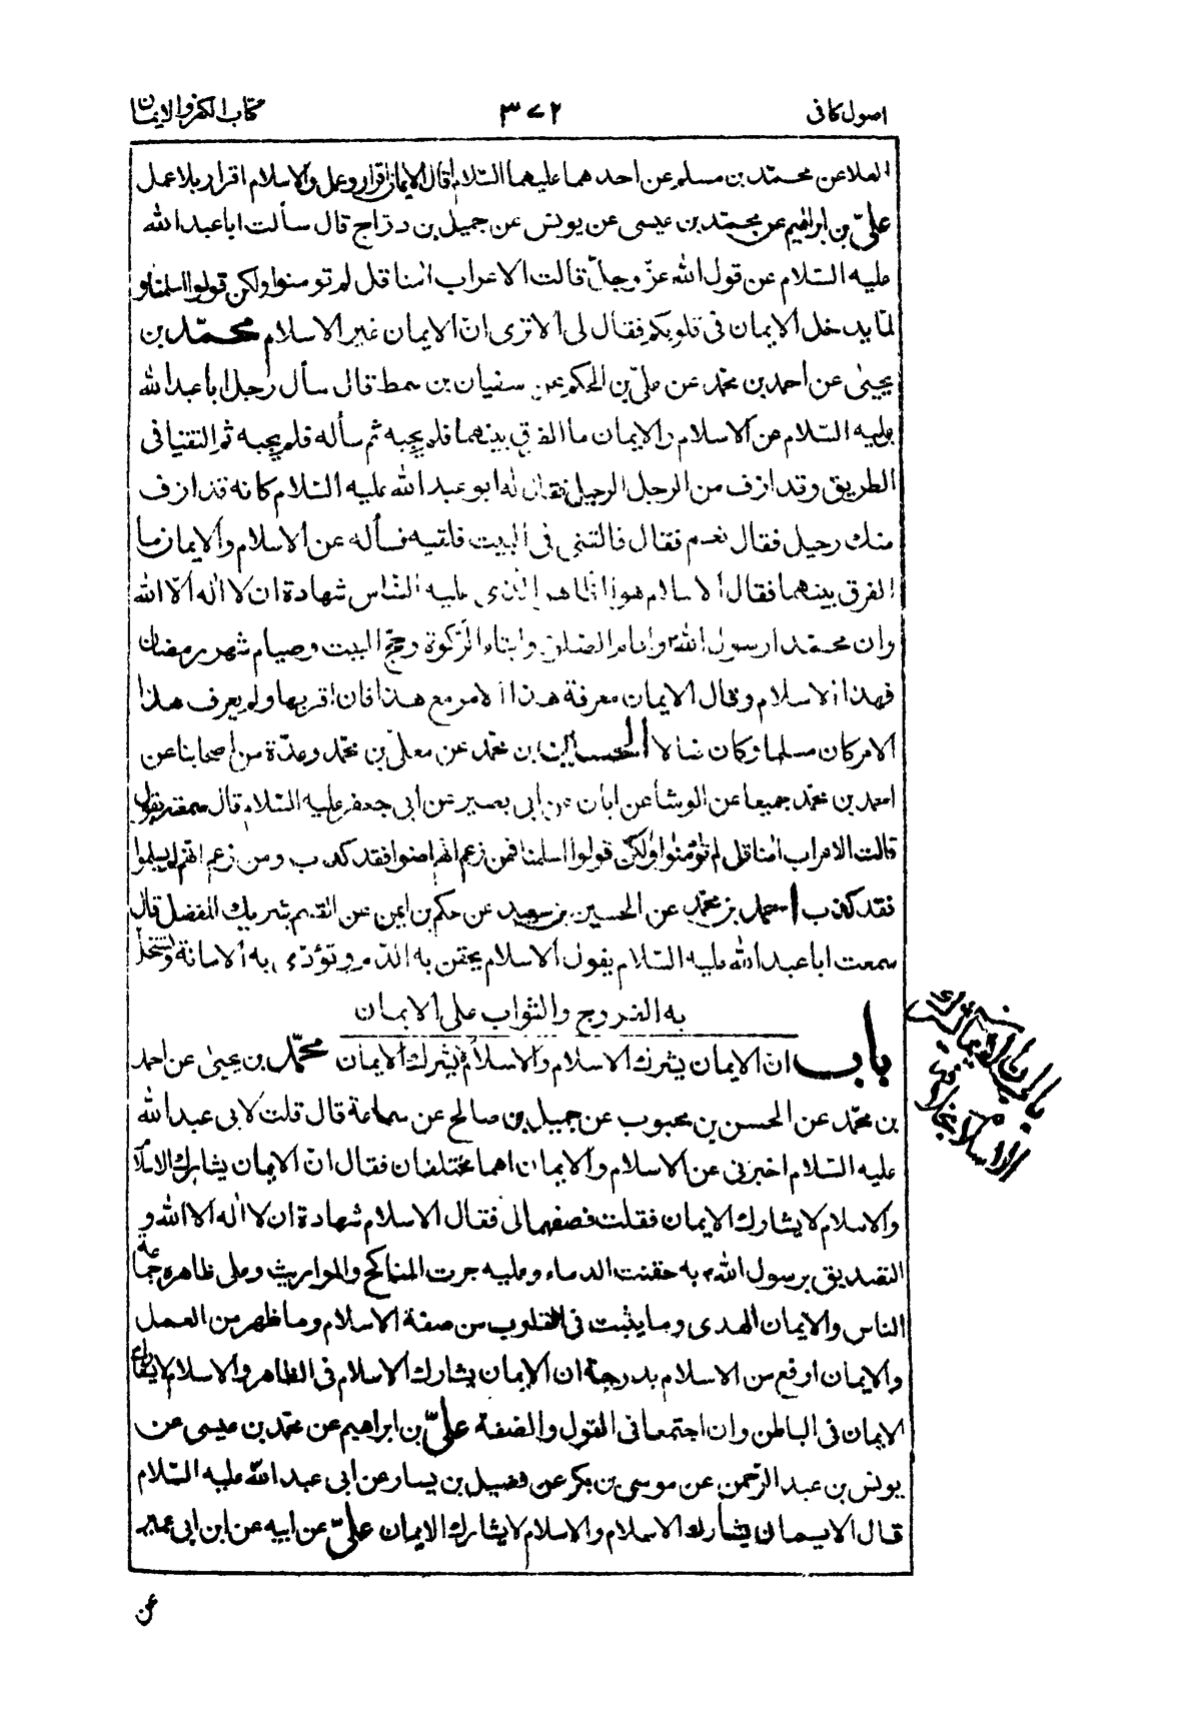 اصول كافى
٣٧٢
كتاب الكفر والايمان
العلا عن محمّد بن مسلم عن احدهما عليهما السّلام قال الايمان اقرار وعمل والاسلام اقرار بلا عمل
علىّ بن ابراهيم عن محمّد بن عيسى عن يونس عن جميل بن درّاج قال سألت ابا عبد الله
عليه السّلام عن قول الله عزّ وجلّ قالت الاعراب امنا قل لم تومنوا ولكن قولوا اسلمنا و
لمّا يدخل الايمان فى قلوبكم فقال لى الا ترى انّ الايمان غير الاسلام محمّد بن
يحيى عن احمد بن محمّد عن علىّ بن الحكم عن سفيان بن سمط قال سأل رجل ابا عبد الله
عليه السّلام عن الاسلام والايمان ما الفرق بينهما فلم يجبه ثم سأله فلم يجبه ثم التقيا فى
الطريق وقد ازف من الرجل الرحيل فقال له ابو عبد الله عليه السّلام كانه قد ازف
منك رحيل فقال نعم فقال فالتقنى فى البيت فلقيه فسأله عن الاسلام والايمان ما
الفرق بينهما فقال الاسلام هو الظاهر الذى عليه النّاس شهادة ان لا اله الّا الله
وان محمّدا رسول الله وإقام الصلوة وايتاء الزّكوة وحجّ البيت وصيام شهر رمضان
فهذا الاسلام وقال الايمان معرفة هذا الامر مع هذا فان اقر بها ولم يعرف هذا
الامر كان مسلما وكان ضالا الحسين بن محمّد عن معلىّ بن محمّد وعدّة من اصحابنا عن
احمد بن محمّد جميعا عن الوشأ عن ابان عن ابى بصير عن ابى جعفر عليه السّلام قال سمعته يقول
قالت الاعراب امنا قل لم تؤمنوا ولكن قولوا اسلمنا فمن زعم انهم امنوا فقد كذب ومن زعم انّهم لم يسلموا
فقد كذب احمد بن محمّد عن الحسين بن سعيد عن حكم بن ايمن عن القسم شريك المفضل قال
سمعت ابا عبد الله عليه السّلام يقول الاسلام يحقن به الدّم وتؤدّى به الامانة وتستحلّ
به الفروج والثواب على الايمان
باب انّ الايمان يشرك الاسلام والاسلام لا يشرك الايمان محمّد بن يحيى عن احمد
بن محمّد عن الحسن بن محبوب عن جميل بن صالح عن سماعة قال قلت لابى عبد الله
عليه السّلام اخبرنى عن الاسلام والايمان اهما مختلفان فقال انّ الايمان يشارك الاسلام
والاسلام لا يشارك الايمان فقلت فصفهما لى فقال الاسلام شهادة ان لا اله الا الله و
التصديق برسول الله به حقنت الدماء وعليه جرت المناكح والمواريث وعلى ظاهره جماعة
الناس والايمان الهدى وما يثبت فى القلوب من صفة الاسلام وما ظهر من العمل
والايمان ارفع من الاسلام بدرجة ان الايمان يشارك الاسلام فى الظاهر والاسلام لا يشارك
الايمان فى الباطن وان اجتمعا فى القول والصفة علىّ بن ابراهيم عن محمّد بن عيسى عن
يونس بن عبد الرّحمن عن موسى بن بكر عن فضيل بن يسار عن ابى عبد الله عليه السّلام
قال الايمان يشارك الاسلام والاسلام لا يشارك الايمان علىّ عن ابيه عن ابن ابى عمير
عن